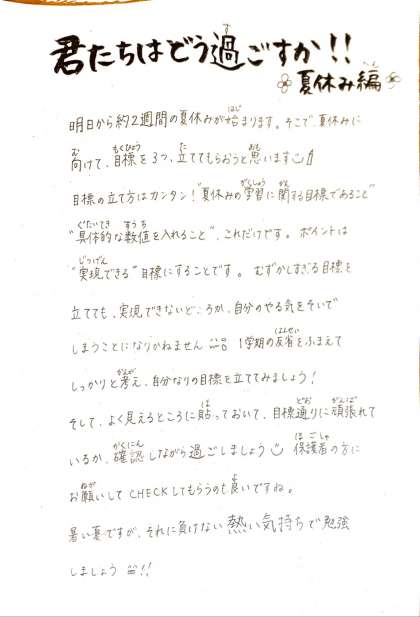 君たちはどう過ごすか!!
夏休み編
明日から約2週間の夏休みが始まります。そこで、夏休みに
向けて、目標を3つ、立ててもらおうと思います
目標の立て方はカンタン!"夏休みの学習に関する目標であること"
"具体的な数値を入れること"、これだけです。ポイントは
"実現できる"目標にすることです。むずかしすぎる目標を
立てても、実現できないどころか、自分のやる気をそいで
しまうことになりかねません 1学期の反省をふまえて
しっかりと考え、自分なりの目標を立ててみましょう!
そして、よく見えるところに貼っておいて、目標通りに頑張れて
いるか、確認しながら過ごしましょう 保護者の方に
お願いしてCHECKしてもらうのも良いですね。
暑い夏ですが、それに負けない熱い気持ちで勉強
しましょう!!